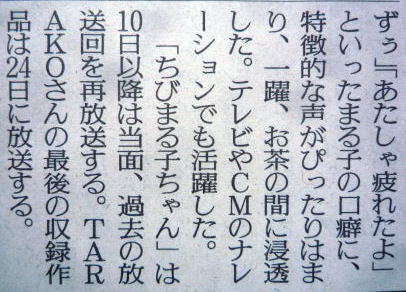 ずぅ」「あたしゃ疲れたよ」
といったまる子の口癖に、
特徴的な声がぴったりはま
り、一躍、お茶の間に浸透
した。テレビやCMのナレ
ーションでも活躍した。
「ちびまる子ちゃん」は
10日以降は当面、過去の放
送回を再放送する。TAR
AKOさんの最後の収録作
品は24日に放送する。